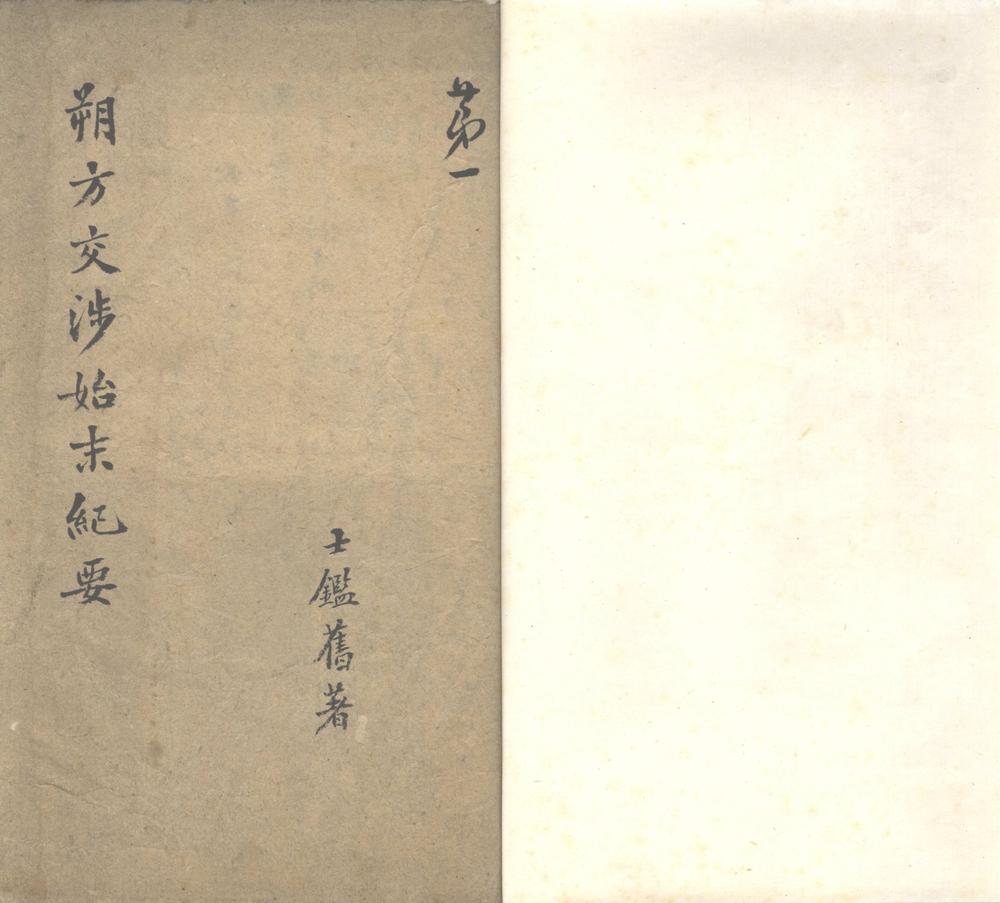 第一
士鑑舊著
朔方交涉始末紀要